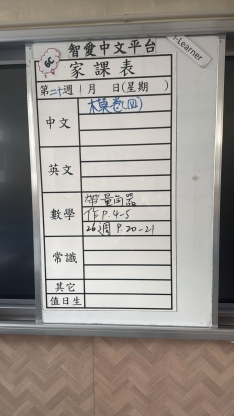 i-Learner
6C
智愛中文平台
家課表
第二十週 1月 日(星期 )
中文 模卷(四)
英文
數學 帶量角器
作P.4-5
26週 P.20-21
常識
其它
值日生